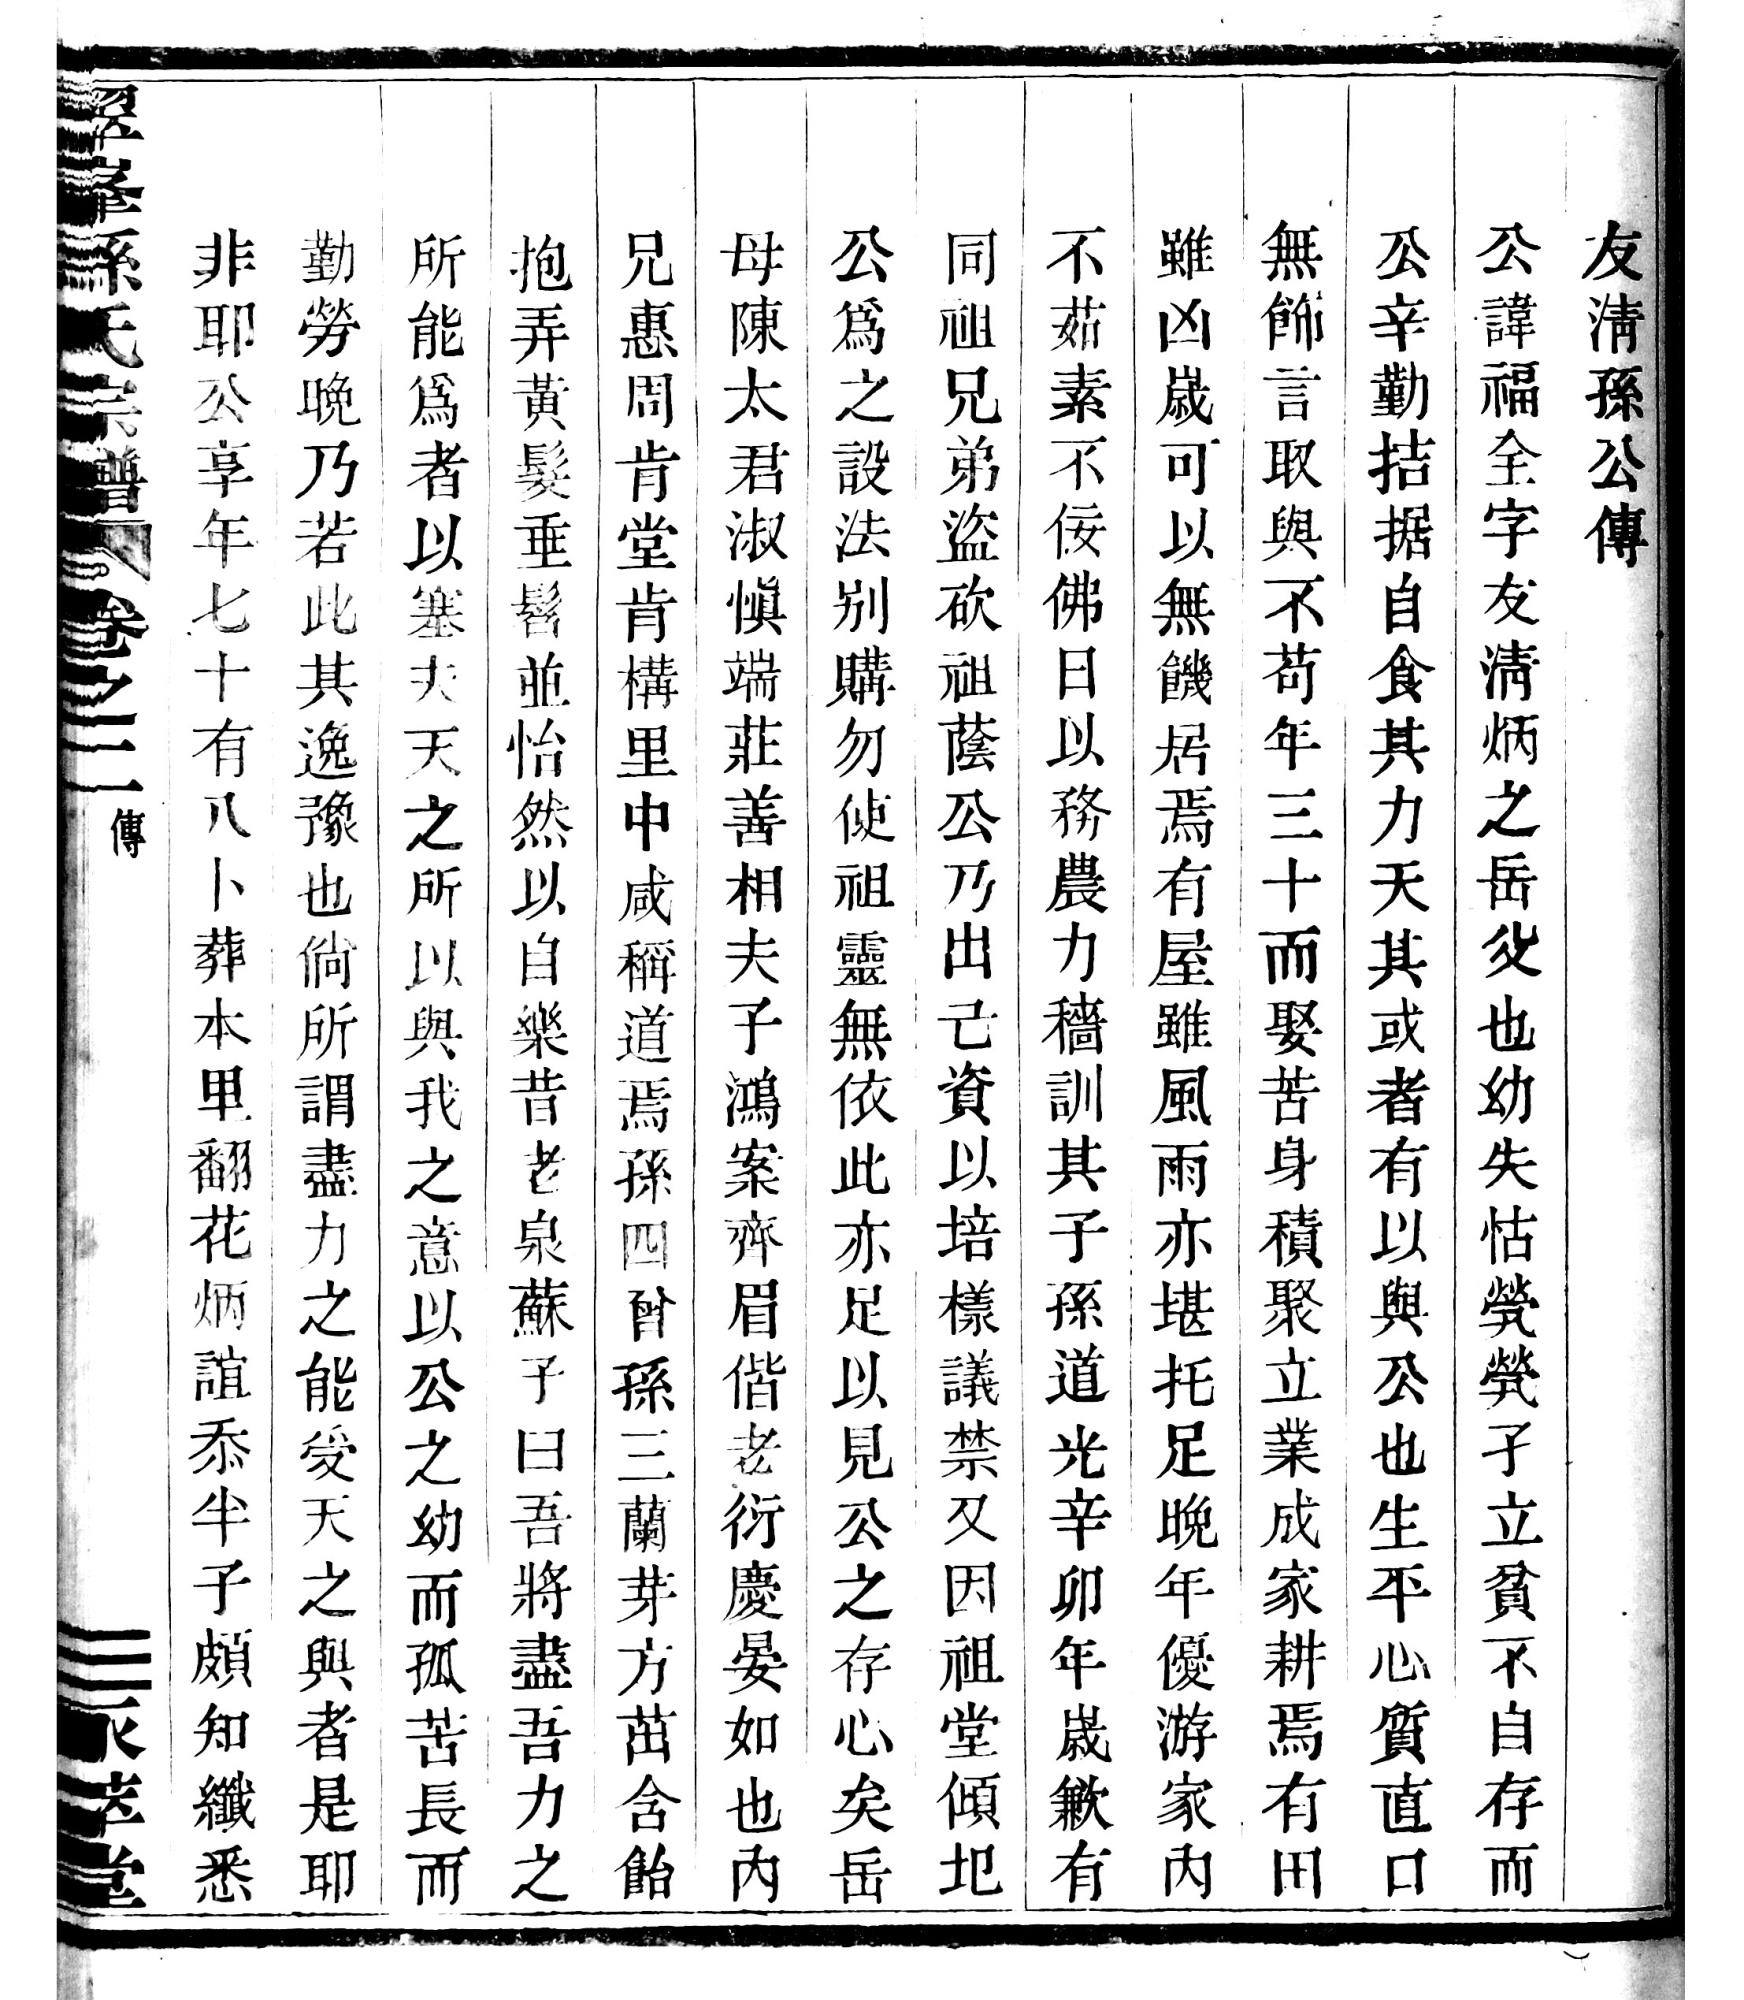 友淸孫公傳
公諱福全字友淸炳之岳父也幼失怙煢煢孑立貧不自存而
公辛勤拮据自食其力天其或者有以與公也生平心質直口
無飾言取與不苟年三十而娶苦身積聚立業成家耕焉有田
雖凶歲可以無饑居焉有屋雖風雨亦堪托足晚年優游家內
不茹素不佞佛日以務農力穡訓其子孫道光辛卯年歲歉有
同祖兄弟盜砍祖蔭公乃出己資以培樣議禁又因祖堂傾圯
公爲之設法别購勿使祖靈無依此亦足以見公之存心矣岳
母陳太君淑愼端莊善相夫子鴻案齊眉偕老衍慶晏如也內
兄惠周肯堂肯構里中咸稱道焉孫四曾孫三蘭芽方茁含飴
抱弄黃髮垂髫並怡然以自樂昔老泉蘇子曰吾將盡吾力之
所能爲者以塞夫天之所以與我之意以公之幼而孤苦長而
勤勞晚乃若此其逸豫也倘所謂盡力之能受天之與者是耶
非耶公享年七十有八卜葬本里翻花炳誼忝半子頗知纖悉
峯孫氏宗譜 卷之二 傳 堂